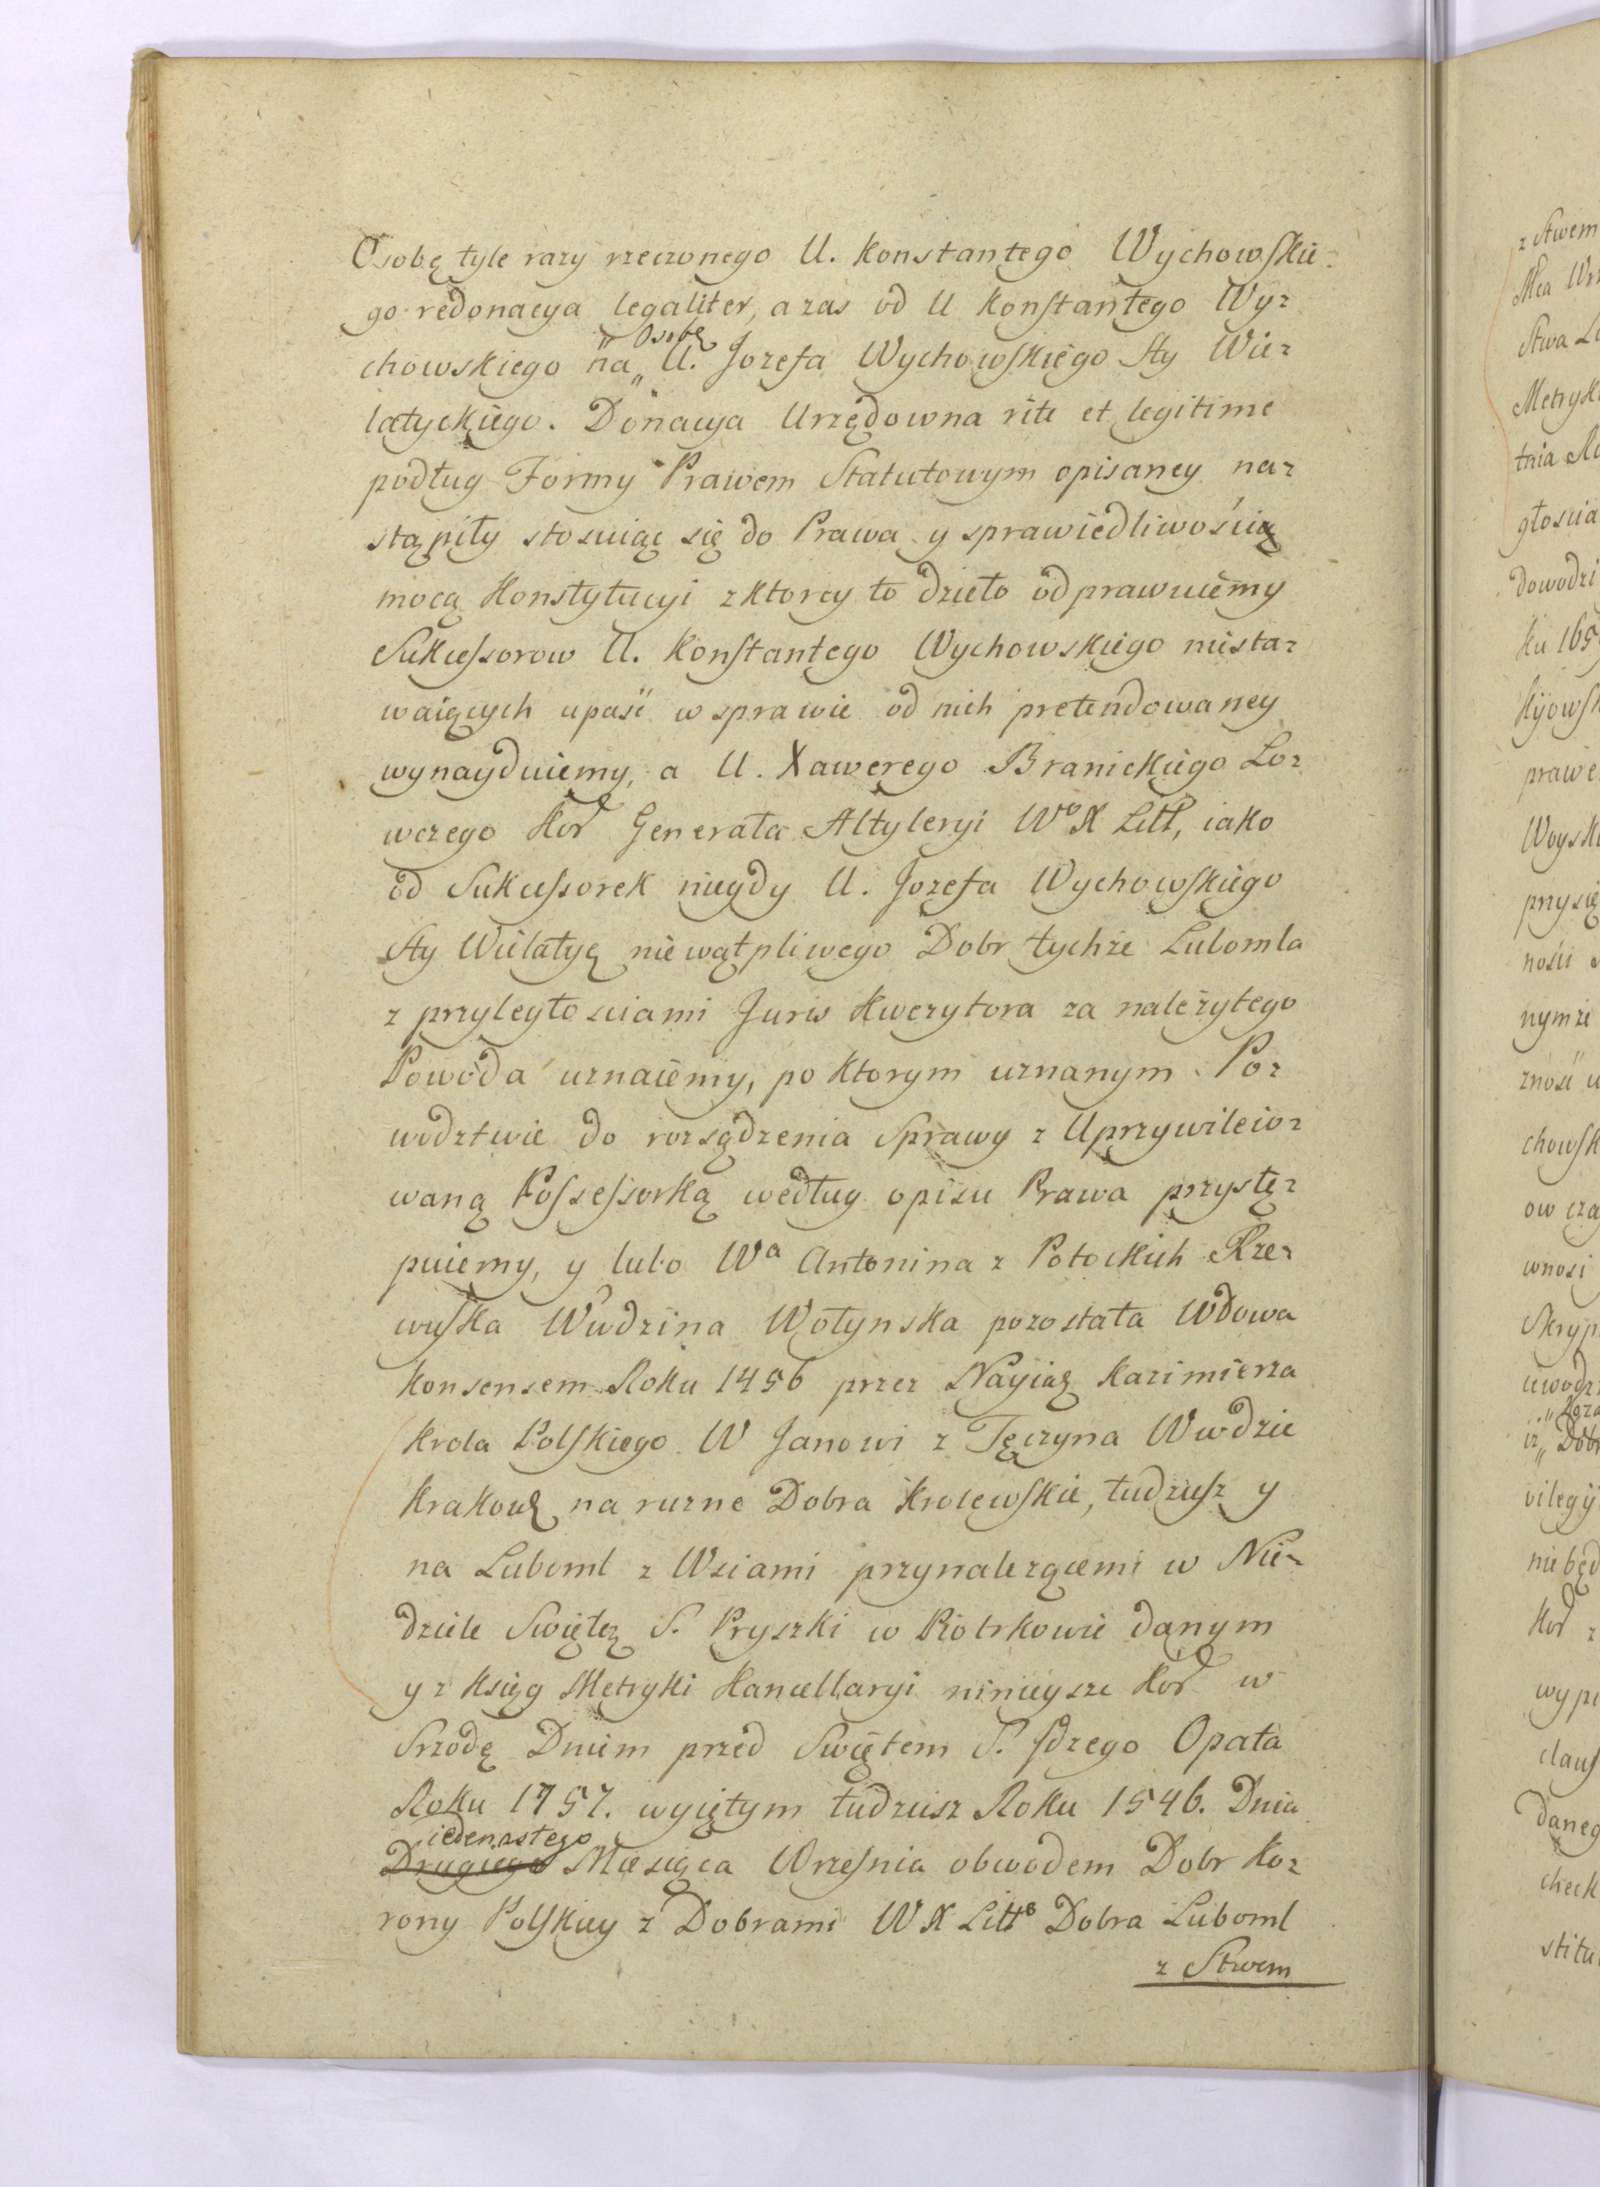 Osobę tyle razy rzeczonego U. Konstantego Wychowskie-
go redonacya legaliter, a zas od U Konstantego Wy-
chowskiego na „Osobę„ U. Jozefa Wychowskiego Sty Wie-
latyckiego. Donacya Urzędowna rite et legitime
podług Formy Prawem Statutowym opisaney na-
stąpiły stosuiąc się do Prawa y sprawiedliwością
mocą Konstytucyi z ktorey to dzieło odprawuiemy
Sukcessorow U. Konstantego Wychowskiego niesta-
waiących upaść w sprawie od nich pretendowaney
wynayduiemy, a U. Xawerego Branickiego Ło-
wczego Kor Generała Altyleryi Wo X Litt, iako
od Sukcessorek niegdy U. Jozefa Wychowskiego
Sty Wielatyc niewątpliwego Dobr tychże Lubomla
z przyległosciami Juris Kwezytora za należytego
Powoda uznaiemy, po ktorym uznanym Po-
wodztwie do rozsądzenia Sprawy z Uprzywileio-
waną Possessorką według opisu Prawa przystę-
puiemy, y lubo Wa Antonina z Potockich Rze-
wuska Wwdzina Wołynska pozostała Wdowa
Konsensem Roku 1456 przez Nayias Kazimierza
Krola Polskiego W Janowi z Tęczyna Wwdzie
Krakow na rozne Dobra Krolewskie, tudziesz y
na Luboml z Wsiami przynalezącemi w Nie-
dziele Swiętey S. Pryszki w Piotrkowie danym
y z Ksiąg Metryki Kancellaryi nineysze Kor w
Srzodę Dniem przed Swiętem S. Idzego Opata
Roku 1757. wyiętym tudziesz Roku 1546. Dnia
iedenastego
Drugiego Miesiąca Wrzesnia obwodem Dobr Ko-
rony Polskiey z Dobrami W X Litt Dobra Luboml
z Stwem
z Stwem
Stwa
Metryk
głoscia
dowodzi
prawe
przysię
nosci
nym ze
chowsk
ow cza
wnosi
Skryp
vilegij
nie będ
Kor z
claus
daneg
stitu